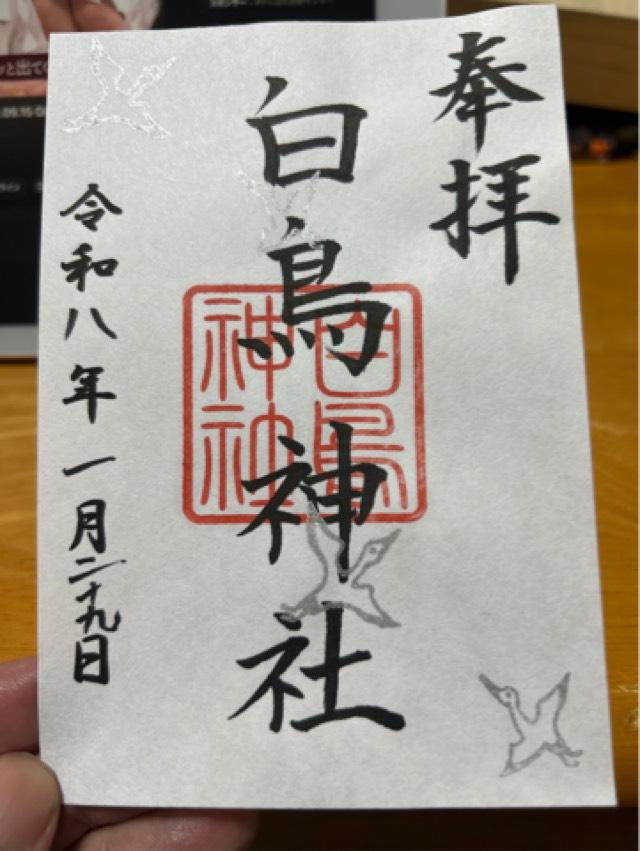 奉拝
白鳥神社
白鳥神社
令和八年一月二十九日